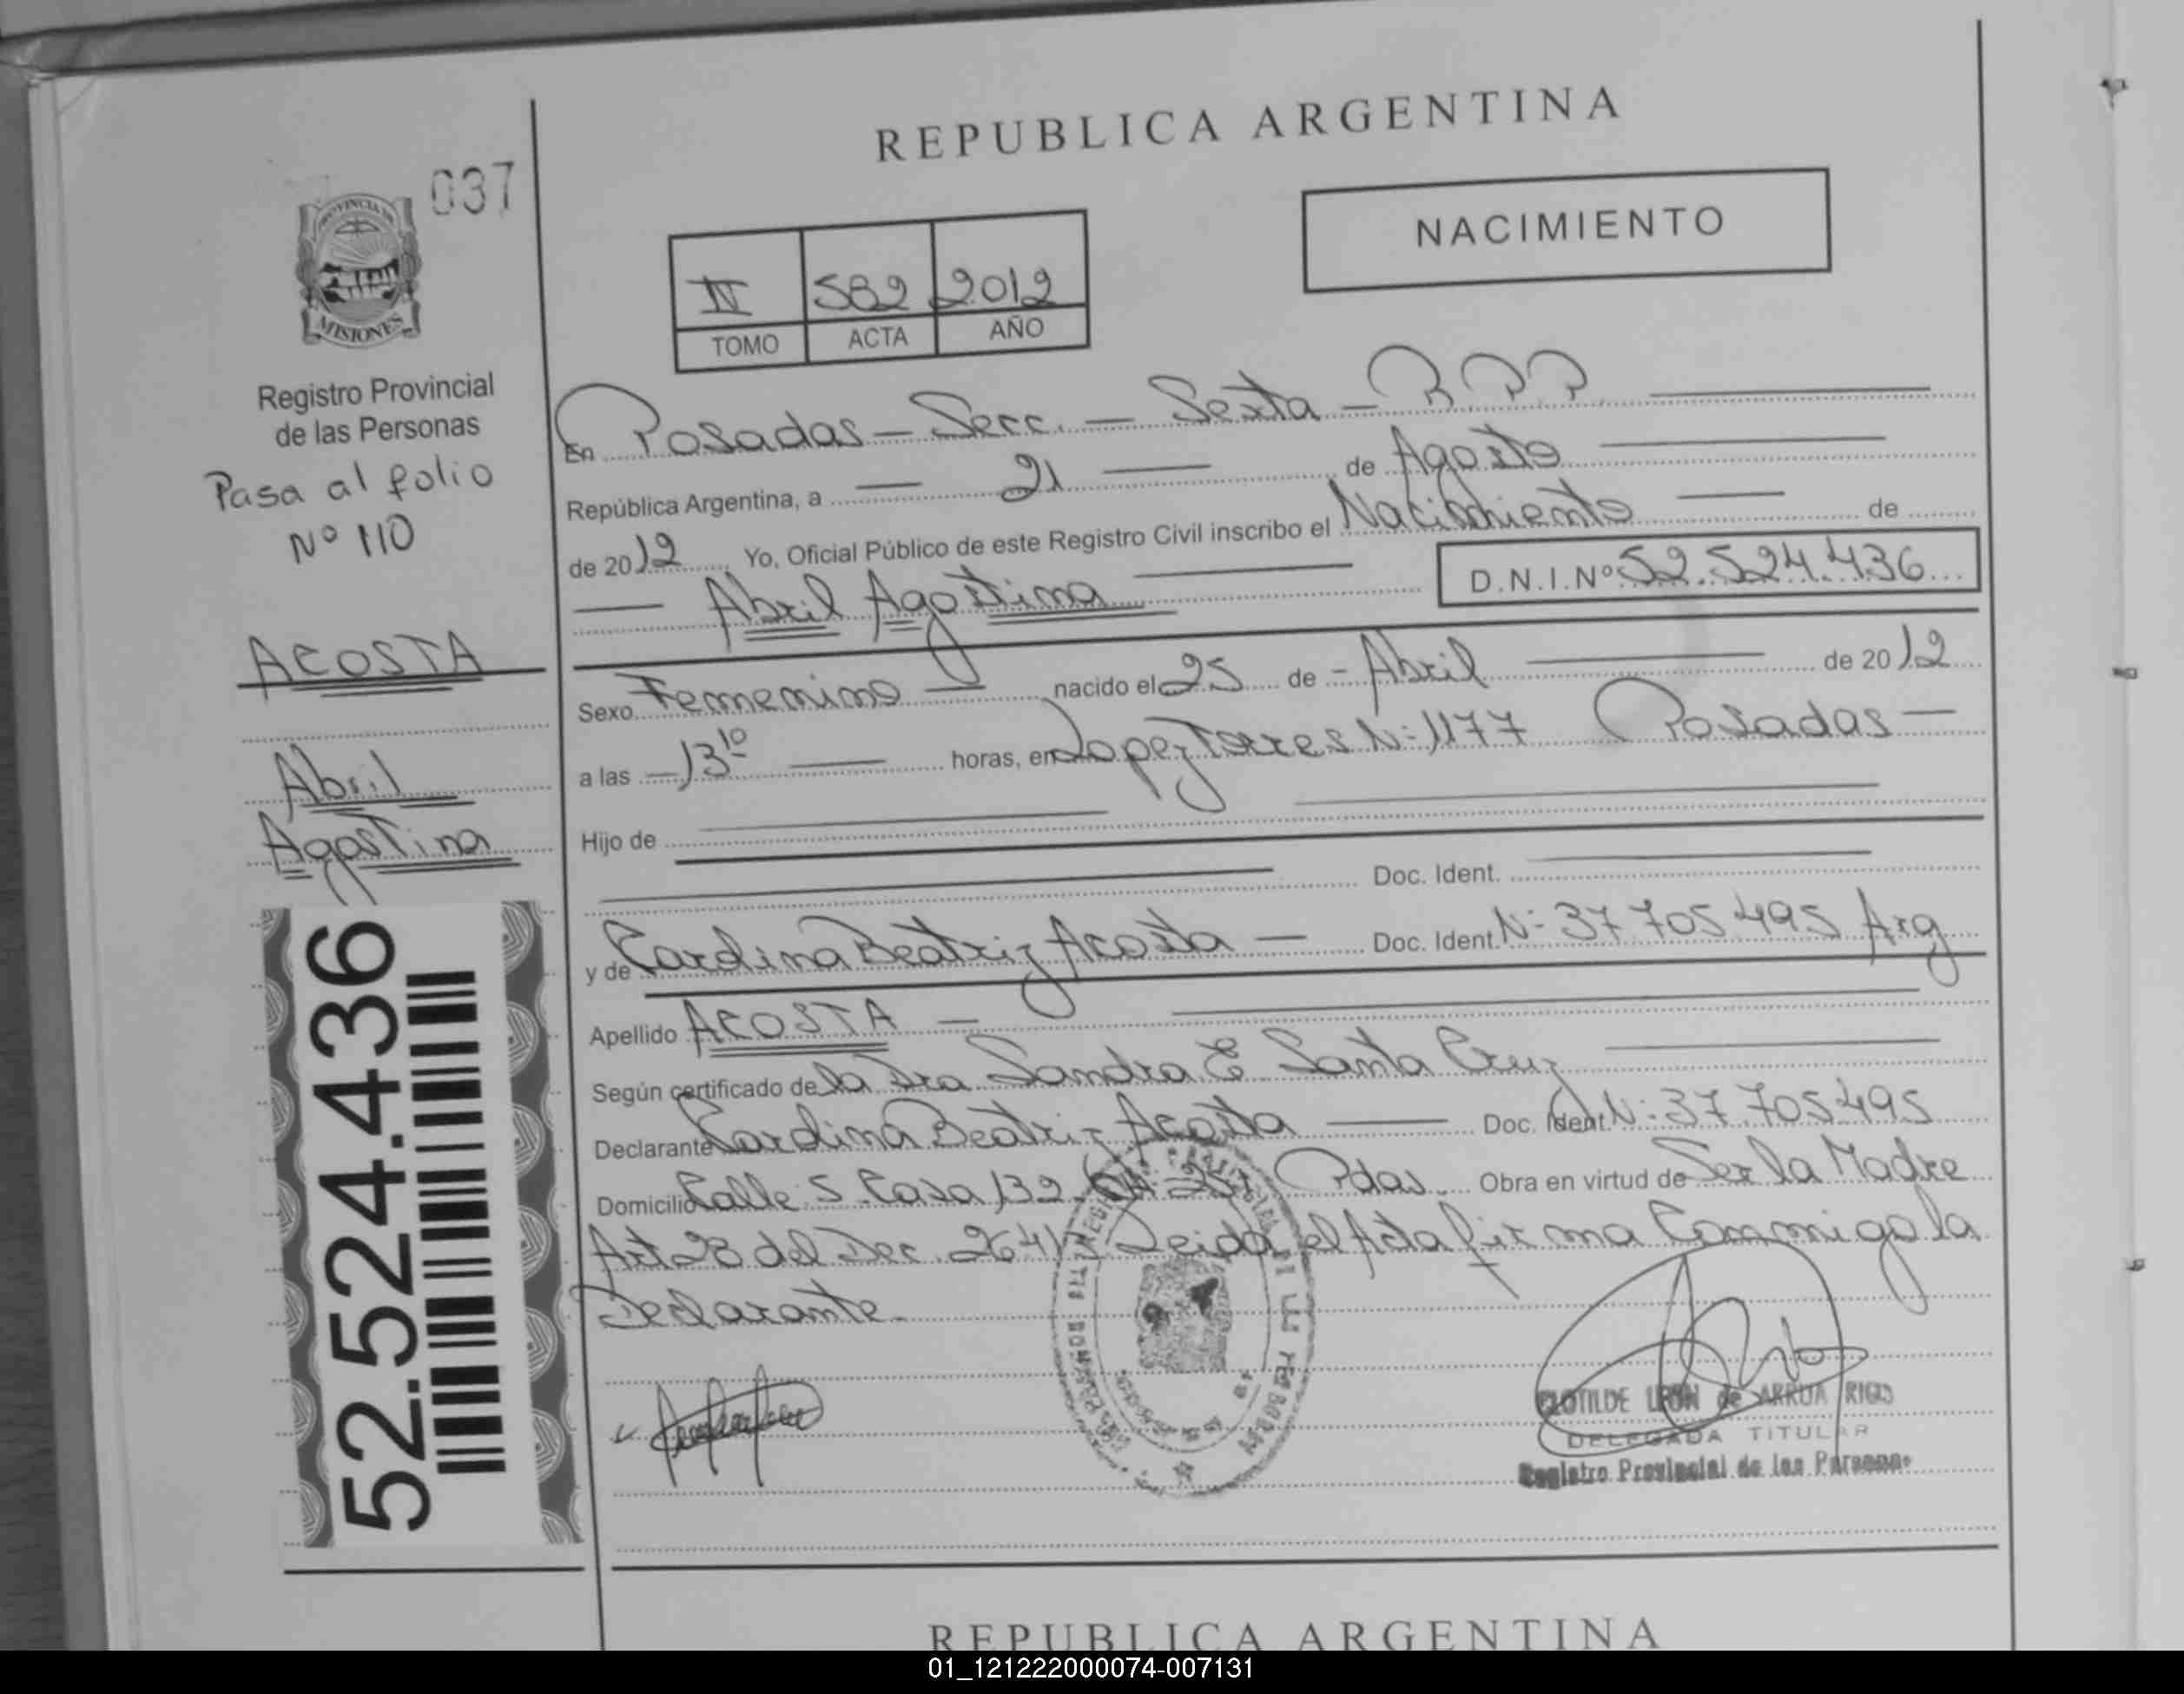 REPUBLICA ARGENTINA
037
PROVINCIA DE
MISIONES
NACIMIENTO
II 582 2012
TOMO ACTA AÑO
Registro Provincial
de las Personas
Pasa al folio
Nº 110
ACOSTA
Abril
Agostina
52.524.436
En Posadas - Secc. - Sexta - R.P.P.
República Argentina, a 21 de Agosto
de 2012 Yo, Oficial Público de este Registro Civil inscribo el Nacimiento de
Abril Agostina D.N.I.Nº 52.524.436
Sexo Femenino nacido el 25 de Abril de 2012
a las 13 10 horas, en Lopez Torres Nº 1177 Posadas
Hijo de
Doc. Ident.
y de Beatriz Acosta Doc. Ident. Nº 37 705 495 Arg
Apellido ACOSTA
Según certificado de la Dra Sandra E Santa Cruz
Declarante Beatriz Acosta Doc. Ident. Nº 37.705 495
Domicilio Calle S. Casa 132 Pdas. Obra en virtud de Ser la Madre
Art 28 del Dec. Leida el Acta firma Conmigo la
Declarante.
CLOTILDE LEON de ARRUA RIOS
DELEGADA TITULAR
Registro Provincial de las Personas
REPUBLICA ARGENTINA
01_121222000074-007131